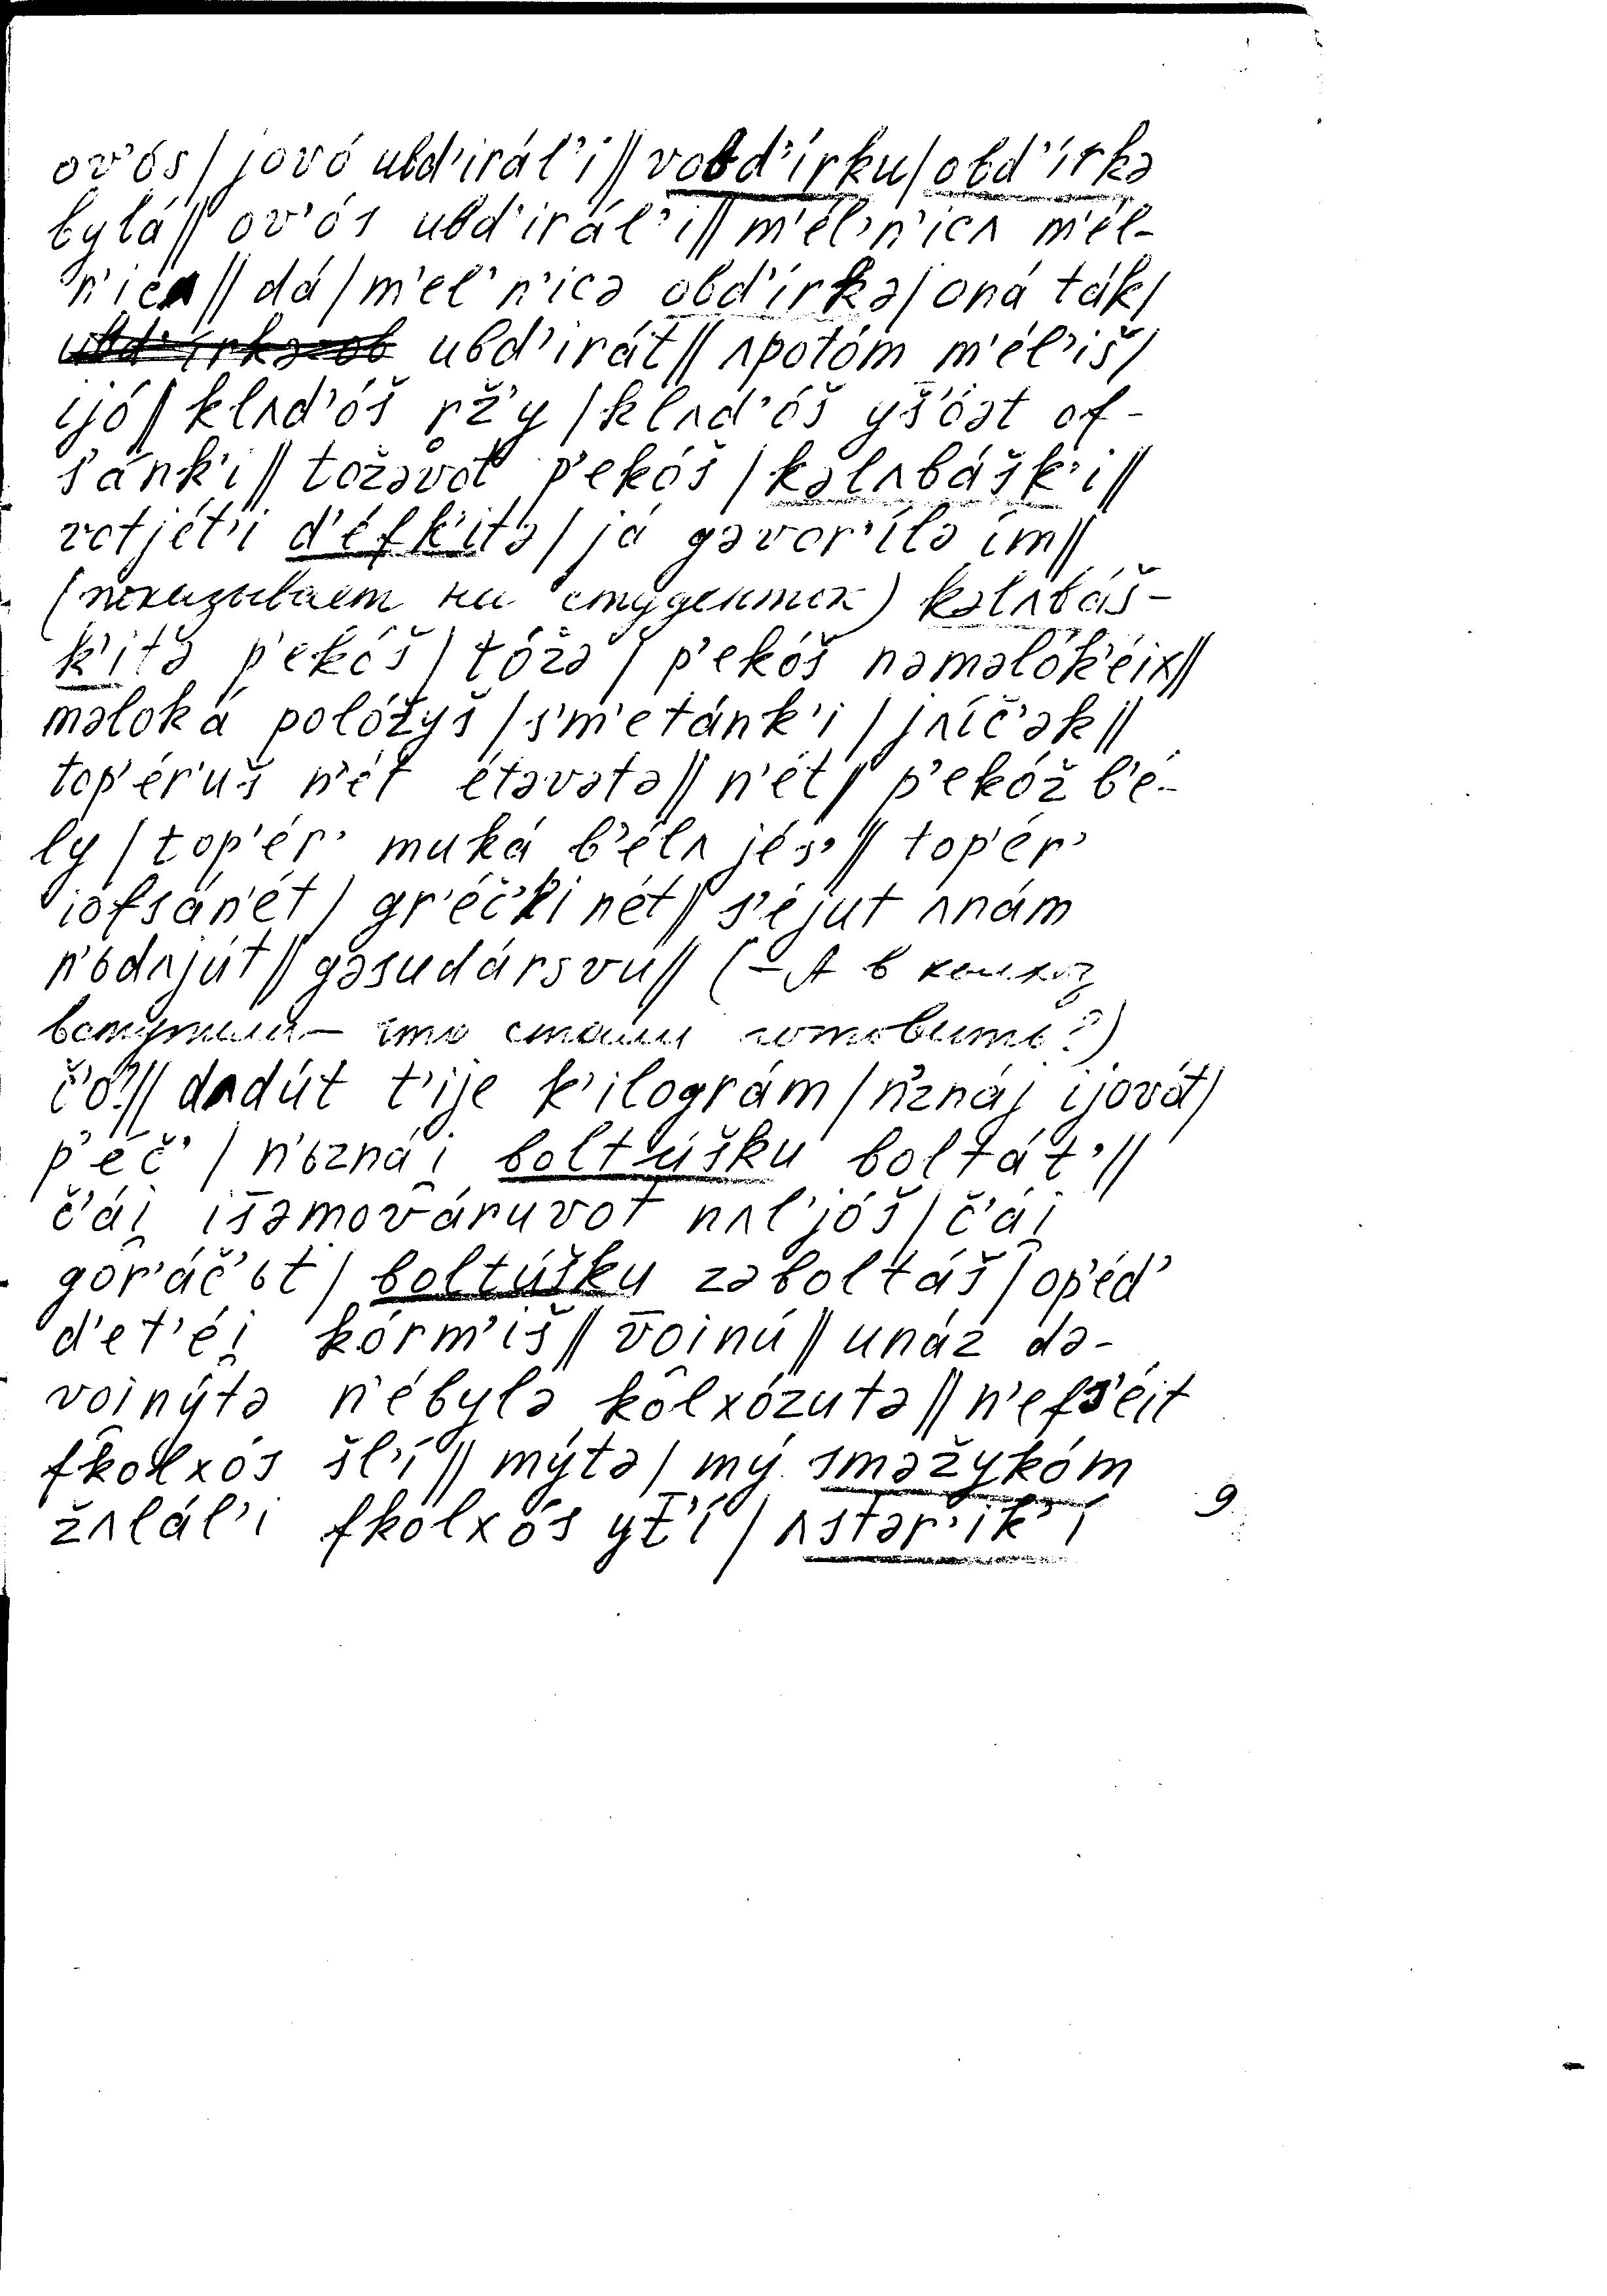 ov'ós / jovó ubd'irál'i // vobd'írku / obd'írkə
bylá // ov'ós ubd'irál'i // m'él'n'icʌ m'él-
n'icʌ // dá / m'el'n'icə obd'írkə / oná ták /
ubd'irát // ʌpotóm m'él'iš /
ijó // klʌd'óš rž'y / klʌd'óš yš'óət of-
s'ánk'i // tóžəvot p'ekóš / kəlʌbášk'i //
votjét'i d'éfk'itə / já gəvor'ílə ím //
(показывает на студенток) kəlʌbáš-
k'itə p'ekóš / tóžə / p'ekóš nəməlók'éix //
məloká polóžyš / s'm'etánk'i / jʌíč'ək //
top'ér'uš n'ét étəvətə // n'ét // p'ekóž b'é-
ly / top'ér' muká b'élʌ jés' // top'ér'
iofsán'ét / gr'éč'ki nét // s'éjut ʌnám
n'ьdʌjút // gəsudársvu // (– А в колхоз
вступили – что стали готовить?)
č'ó? // dʌdút t'ije k'ilográm / n'znáj ijovót /
p'éč' / n'ьznái̯ boltúšku boltát' //
č'ái̯ is̄əmováruvot nʌl'jóš / č'ái̯
gôr'áč'ьt / boltúšku zəboltáš / op'éd'
d'et'éi̯ kórm'iš // v̄oinú // unáz də-
voinýtə n'ébylə kôlxózutə // n'efs'éit
fkôlxós šl'í // mýtə / mý sməžykóm
žʌlál'i fkôlxós yt̄'í / ʌstər'ik'í
9